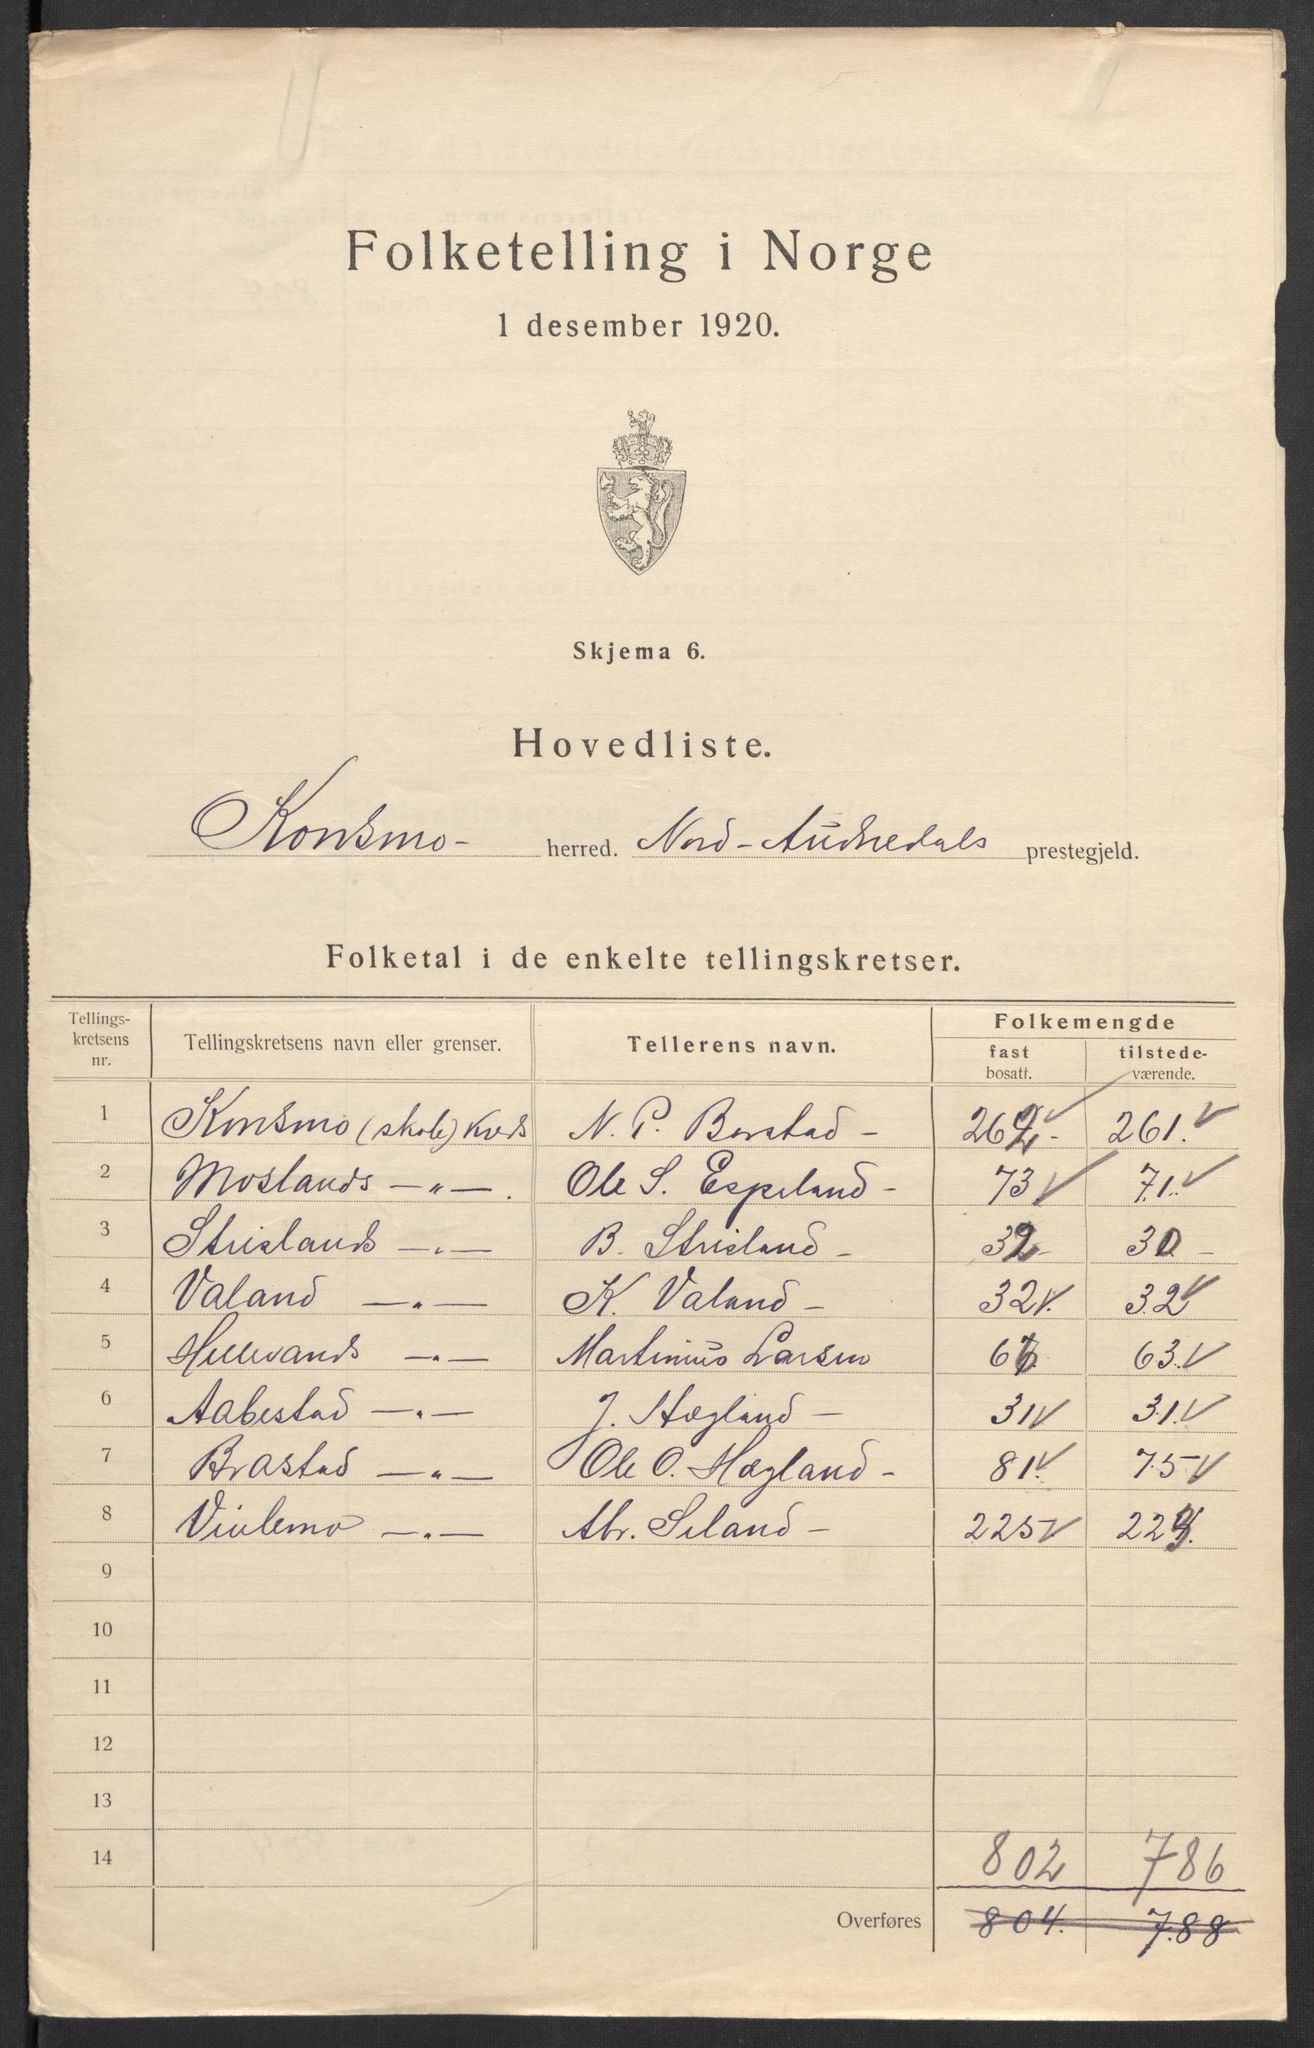 Folketelling i Norge
1 desember 1920.
Skjema 6.
Hovedliste.
Konsmo- herred. Nord-Audnedals prestegjeld.
Folketal i de enkelte tellingskretser.
Tellings-kretsens nr. Tellingskretsens navn eller grenser. Tellerens navn. Folkemengde fast bosatt. tilstede-værende.
1 Konsmo (skole) Kreds N. P. Berstad - 262 - 261. V
2 Moslands -„- . Ole S. Espeland - 73 V 71. V
3 Strislands -„- B. Strisland - 32 - 30 -
4 Valand -„- K. Valand - 32 V. 32 V
5 Hellevands -„- Martinius Larsen 66 63. V
6 Aabestad -„- J. Hægland - 31 V 31. V
7 Brastad -„- Ole O. Hægland - 81 V. 75 V
8 Viulemo -„- Abr. Seland - 225 V 223.
9
10
11
12
13
14 802 786
Overføres 804. 788